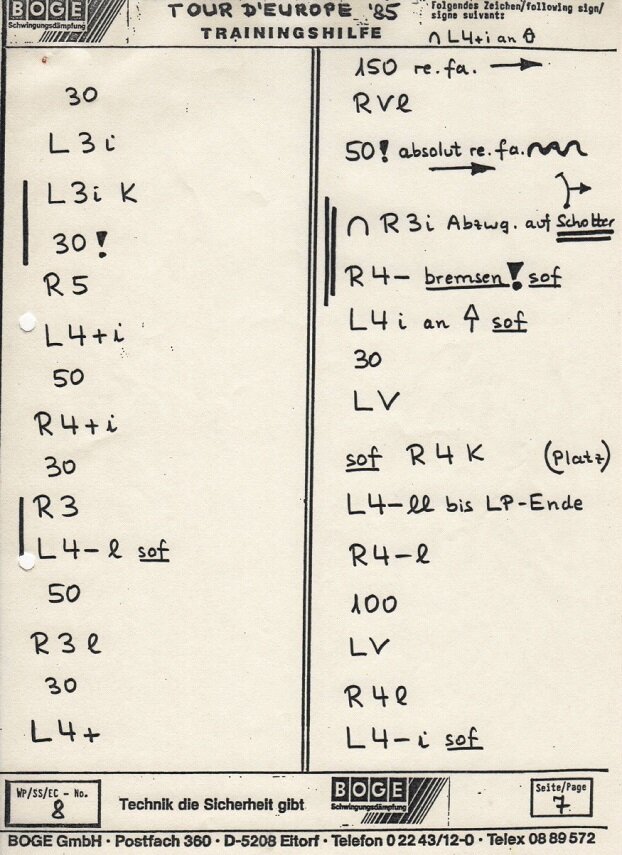 BOGE
Schwingungsdämpfung
TOUR D'EUROPE '85
TRAININGSHILFE
Folgendes Zeichen/following sign/
signe suivant:
∩ L4+i an
30
L3i
L3i K
30!
R5
L4+i
50
R4+i
30
R3
L4-l sof
50
R3l
30
L4+
150 re.fa. →
RVl
50! absolut re.fa.
→
∩ R3i Abzwg. auf Schotter
R4- bremsen! sof
L4i an ↑ sof
30
LV
sof R4K (Platz)
L4-ll bis LP-Ende
R4-l
100
LV
R4l
L4-i sof
WP/SS/EC - No.
8
Technik die Sicherheit gibt
BOGE
Schwingungsdämpfung
Seite/Page
7
BOGE GmbH · Postfach 360 · D-5208 Eitorf · Telefon 0 22 43/12-0 · Telex 08 89 572